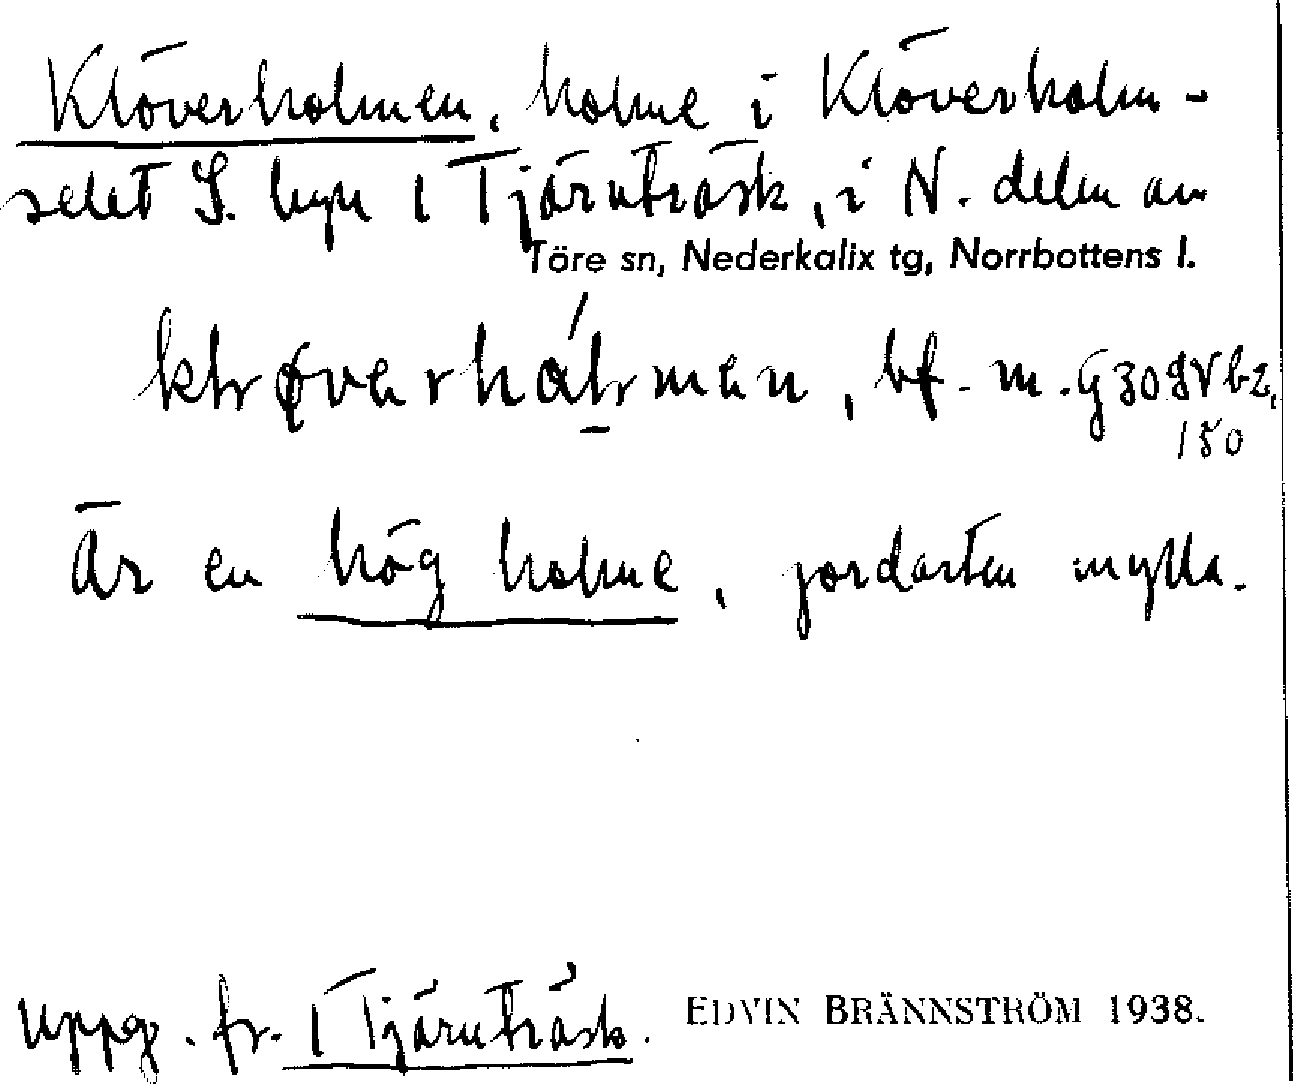 Klöverholmen, holme i Klöverholm-
selet S. byn 1 Tjärnträsk, i N. delen av
Töre sn, Nederkalix tg, Norrbottens l.
bf. m.
150
Är en hög holme, jordarten mylla.
Uppg. fr. 1 Tjärnträsk. EDVIN BRÄNNSTRÖM 1938.